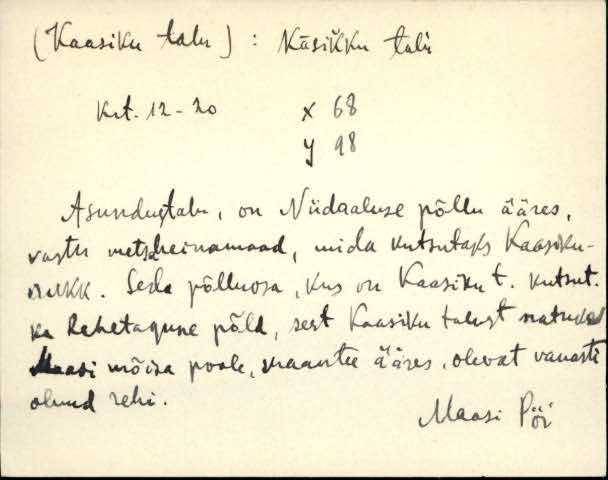 (Kaasiku talu) : Kāsikku talu
Krt. 12-20 x 68
y 98
Asundustalu, on Niidaaluse põllu ääres,
vastu metsheinamaad, mida kutsutaks Kaasiku-
nukk. Seda põlluosa, kus on Kaasiku t. kutsut.
ka Rehetaguse põld, sest Kaasiku talust natuke
Maasi mõisa poole, maantee ääres, olevat vanasti
olnud rehi.
Maasi Pöi